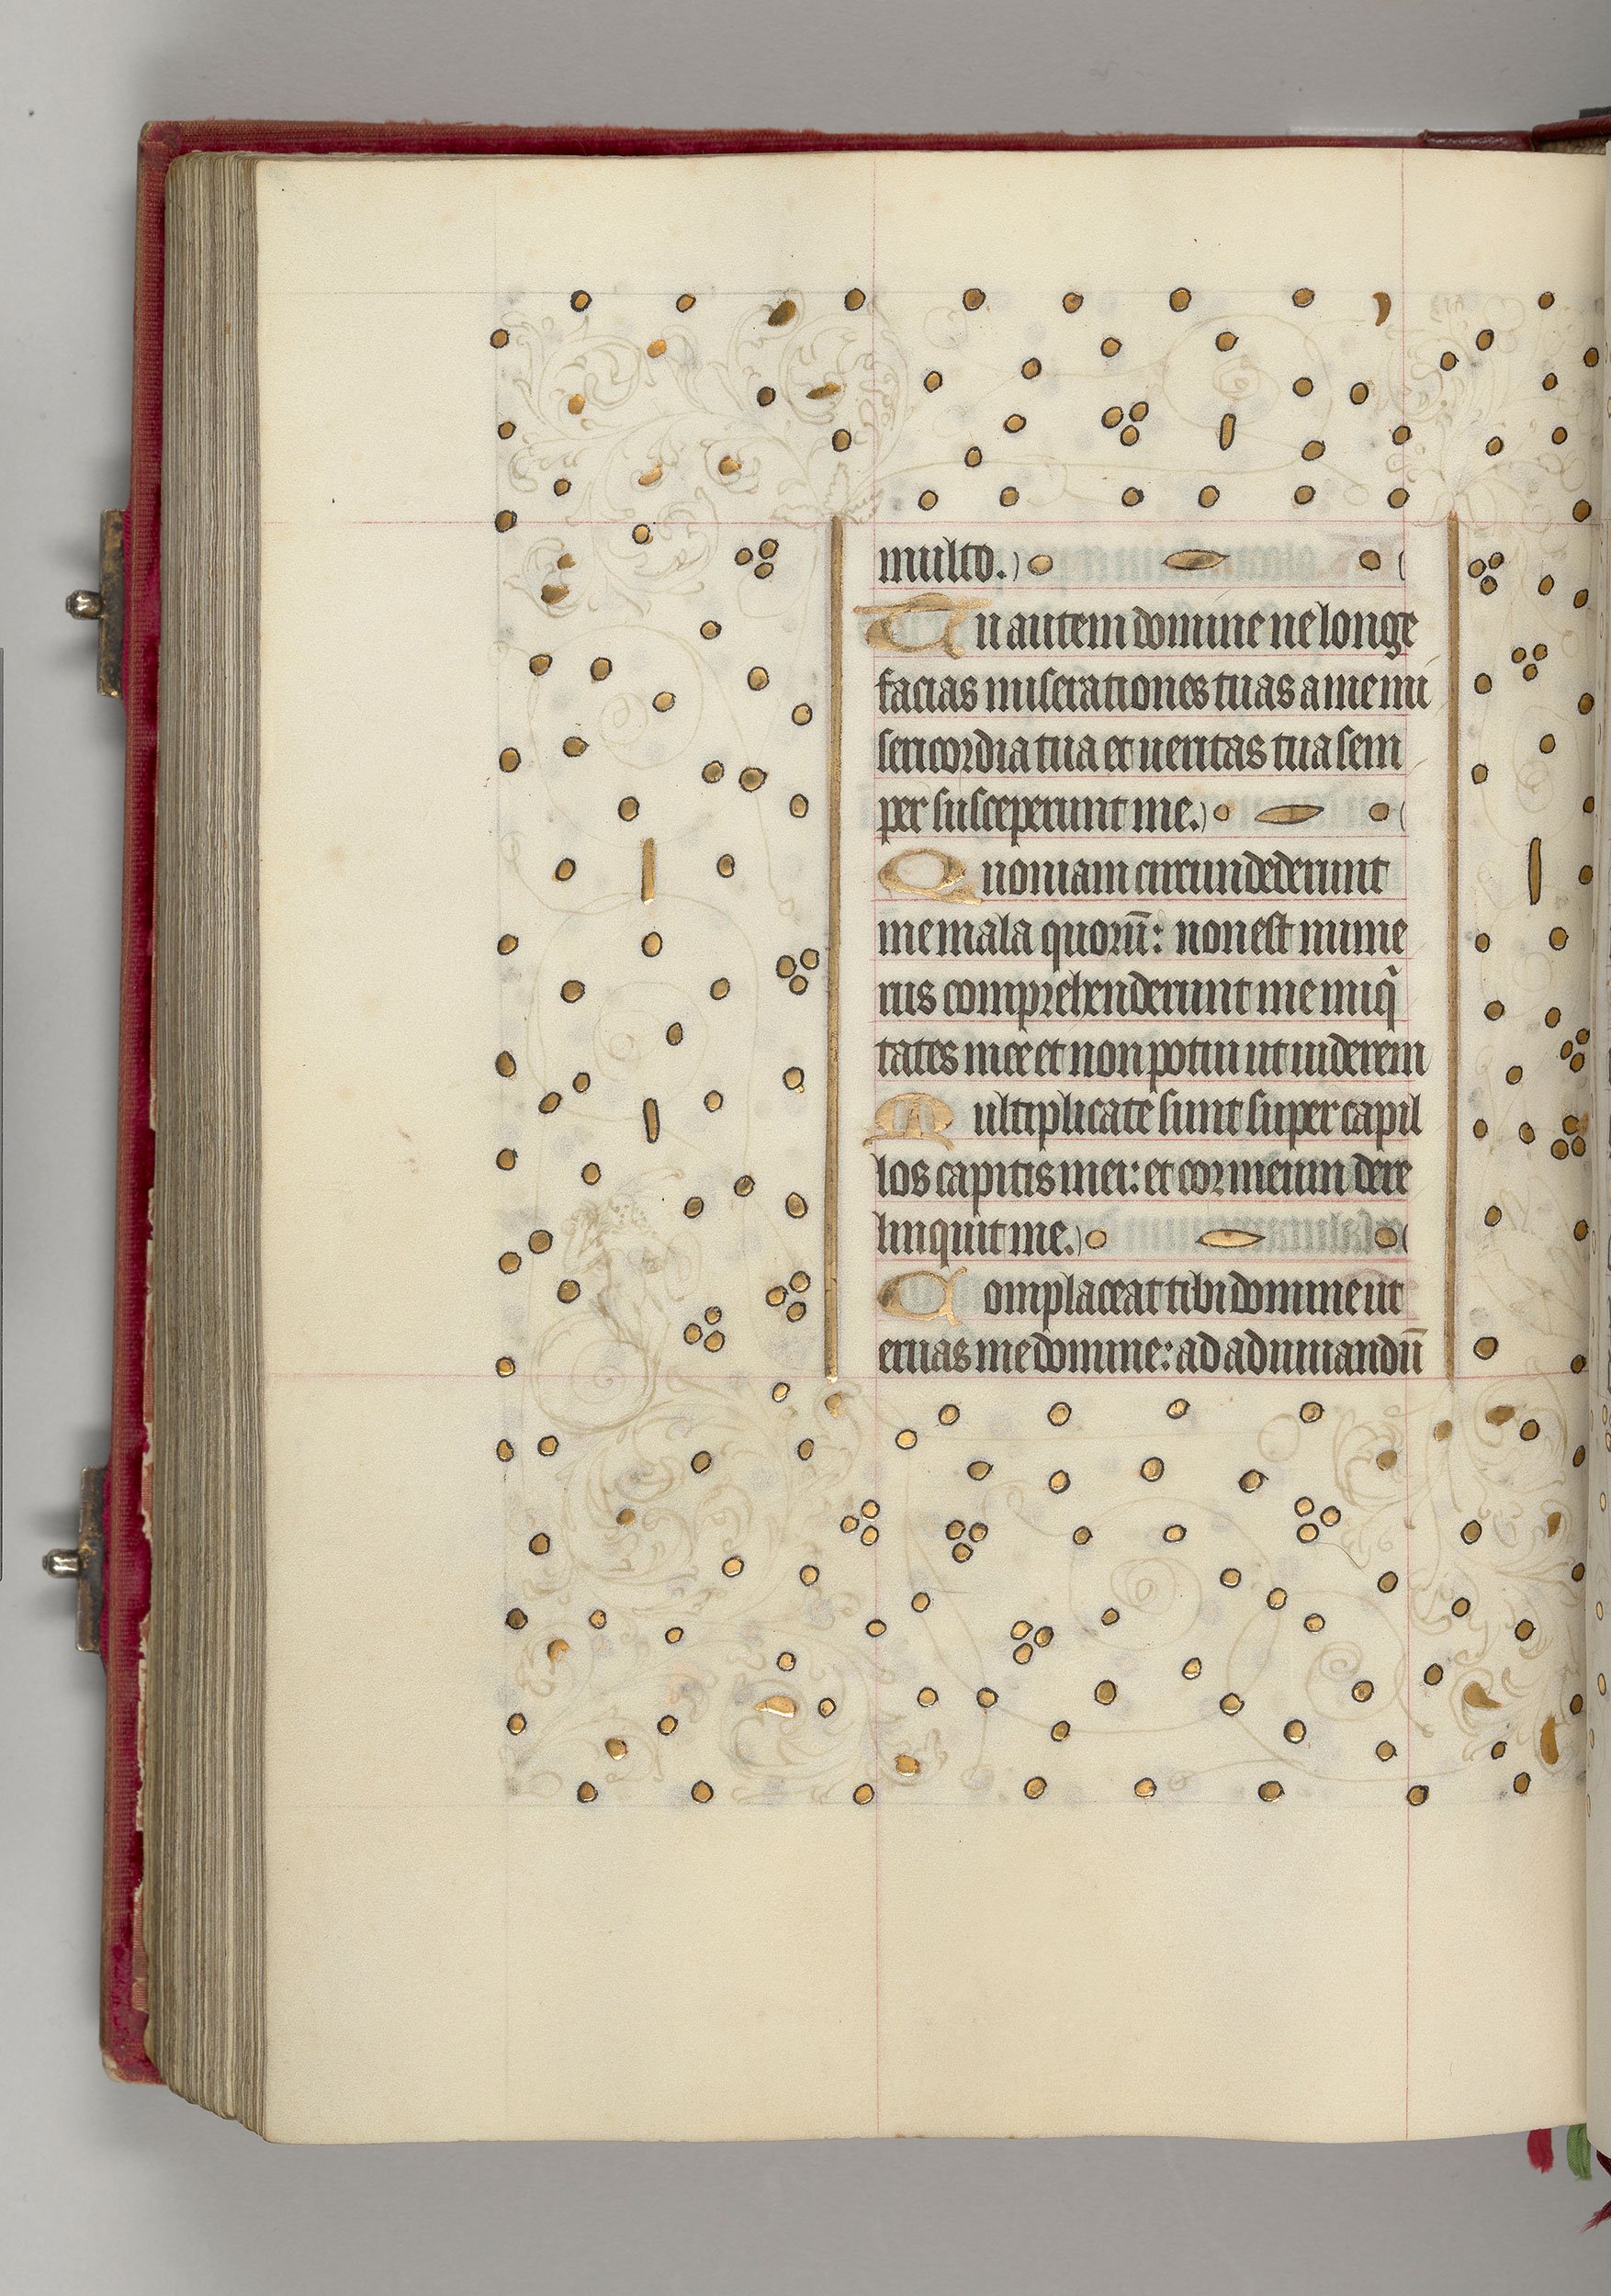 multo.
Tu autem domine ne longe
facias miserationes tuas a me mi
sericordia tua et ueritas tua sem
per susceperunt me.
Quoniam circundederunt
me mala quorū: non est nume
rus comprehenderunt me iniq̄
tates mee et non potui ut uiderem
Multiplicate sunt super capil
los capitis mei: et cor meum dere
linquit me.
Complaceat tibi domine ut
eruas me domine: ad adiuuandū